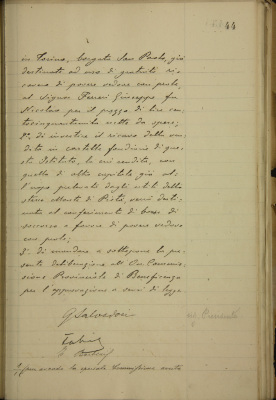 44
in Torino, borgata San Paolo, già
destinato ad uso di gratuito ri-
covero di povere vedove con prole,
al Signor Ferrari Giuseppe fu
Nicolao per il prezzo di lire cen-
tocinquantamila nette da spese;
2º. di investire il ricavo della ven-
dita in cartelle fondiarie di que-
sto Istituto, la cui rendita, con
quella di altro capitale già al-
l'uopo prelevato dagli utili dello
stesso Monte di Pietà, verrà desti-
nata al conferimento di borse di
soccorso a favore di povere vedove
con prole;
3º. di mandare a sottoporre la pre-
sente deliberazione all'On. Commis-
sione Provinciale di Beneficenza
per l'approvazione a sensi di legge.
G Salvadori